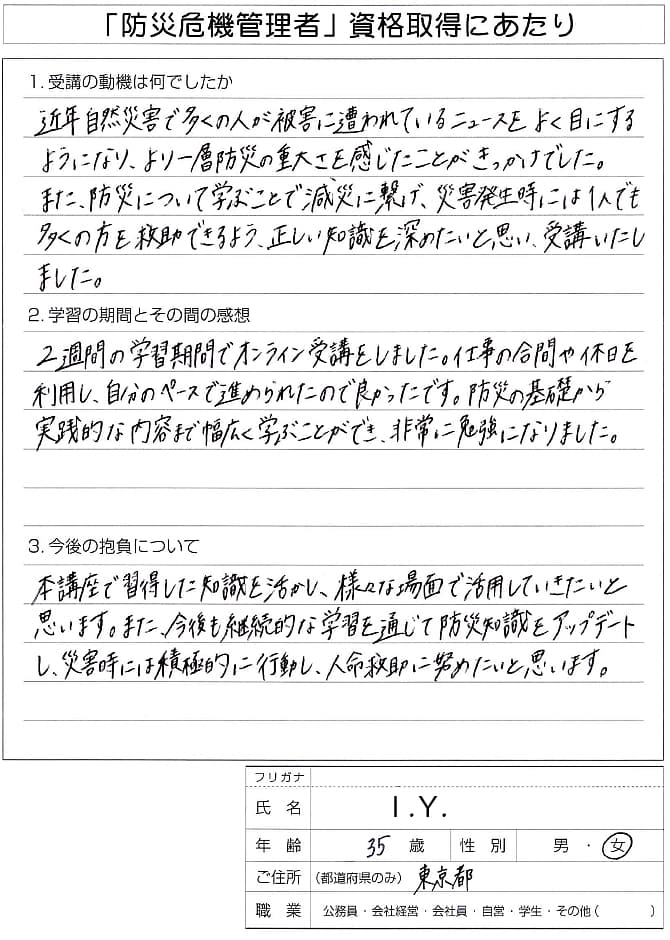 「防災危機管理者」資格取得にあたり
1. 受講の動機は何でしたか
近年自然災害で多くの人が被害に遭われているニュースをよく目にする
ようになり、より一層防災の重大さを感じたことがきっかけでした。
また、防災について学ぶことで減災に繋げ、災害発生時には1人でも
多くの方を救助できるよう、正しい知識を深めたいと思い、受講いたし
ました。
2. 学習の期間とその間の感想
2週間の学習期間でオンライン受講をしました。仕事の合間や休日を
利用し、自分のペースで進められたので良かったです。防災の基礎から
実践的な内容まで幅広く学ぶことができ、非常に勉強になりました。
3. 今後の抱負について
本講座で習得した知識を活かし、様々な場面で活用していきたいと
思います。また、今後も継続的な学習を通じて防災知識をアップデート
し、災害時には積極的に行動し、人命救助に努めたいと思います。
フリガナ
氏 名 I.Y.
年 齢 35 歳 性 別 男 ・ 女
ご住所 (都道府県のみ) 東京都
職 業 公務員・会社経営・会社員・自営・学生・その他( )